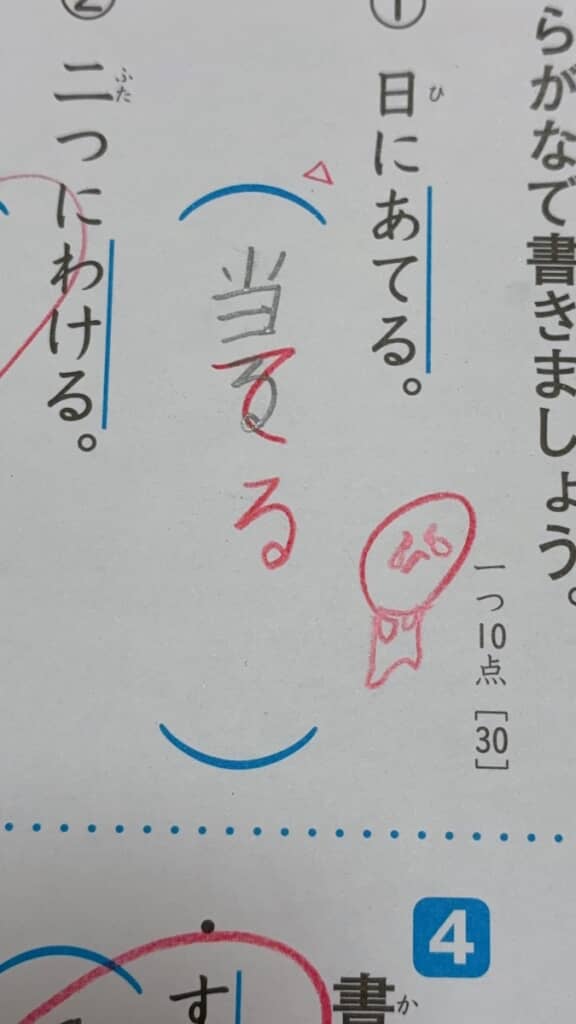 らがなで書きましょう。
一つ10点［30］
① 日にあてる。
ひ
当る
てる
② 二つにわける。
ふた
4
書
か
す